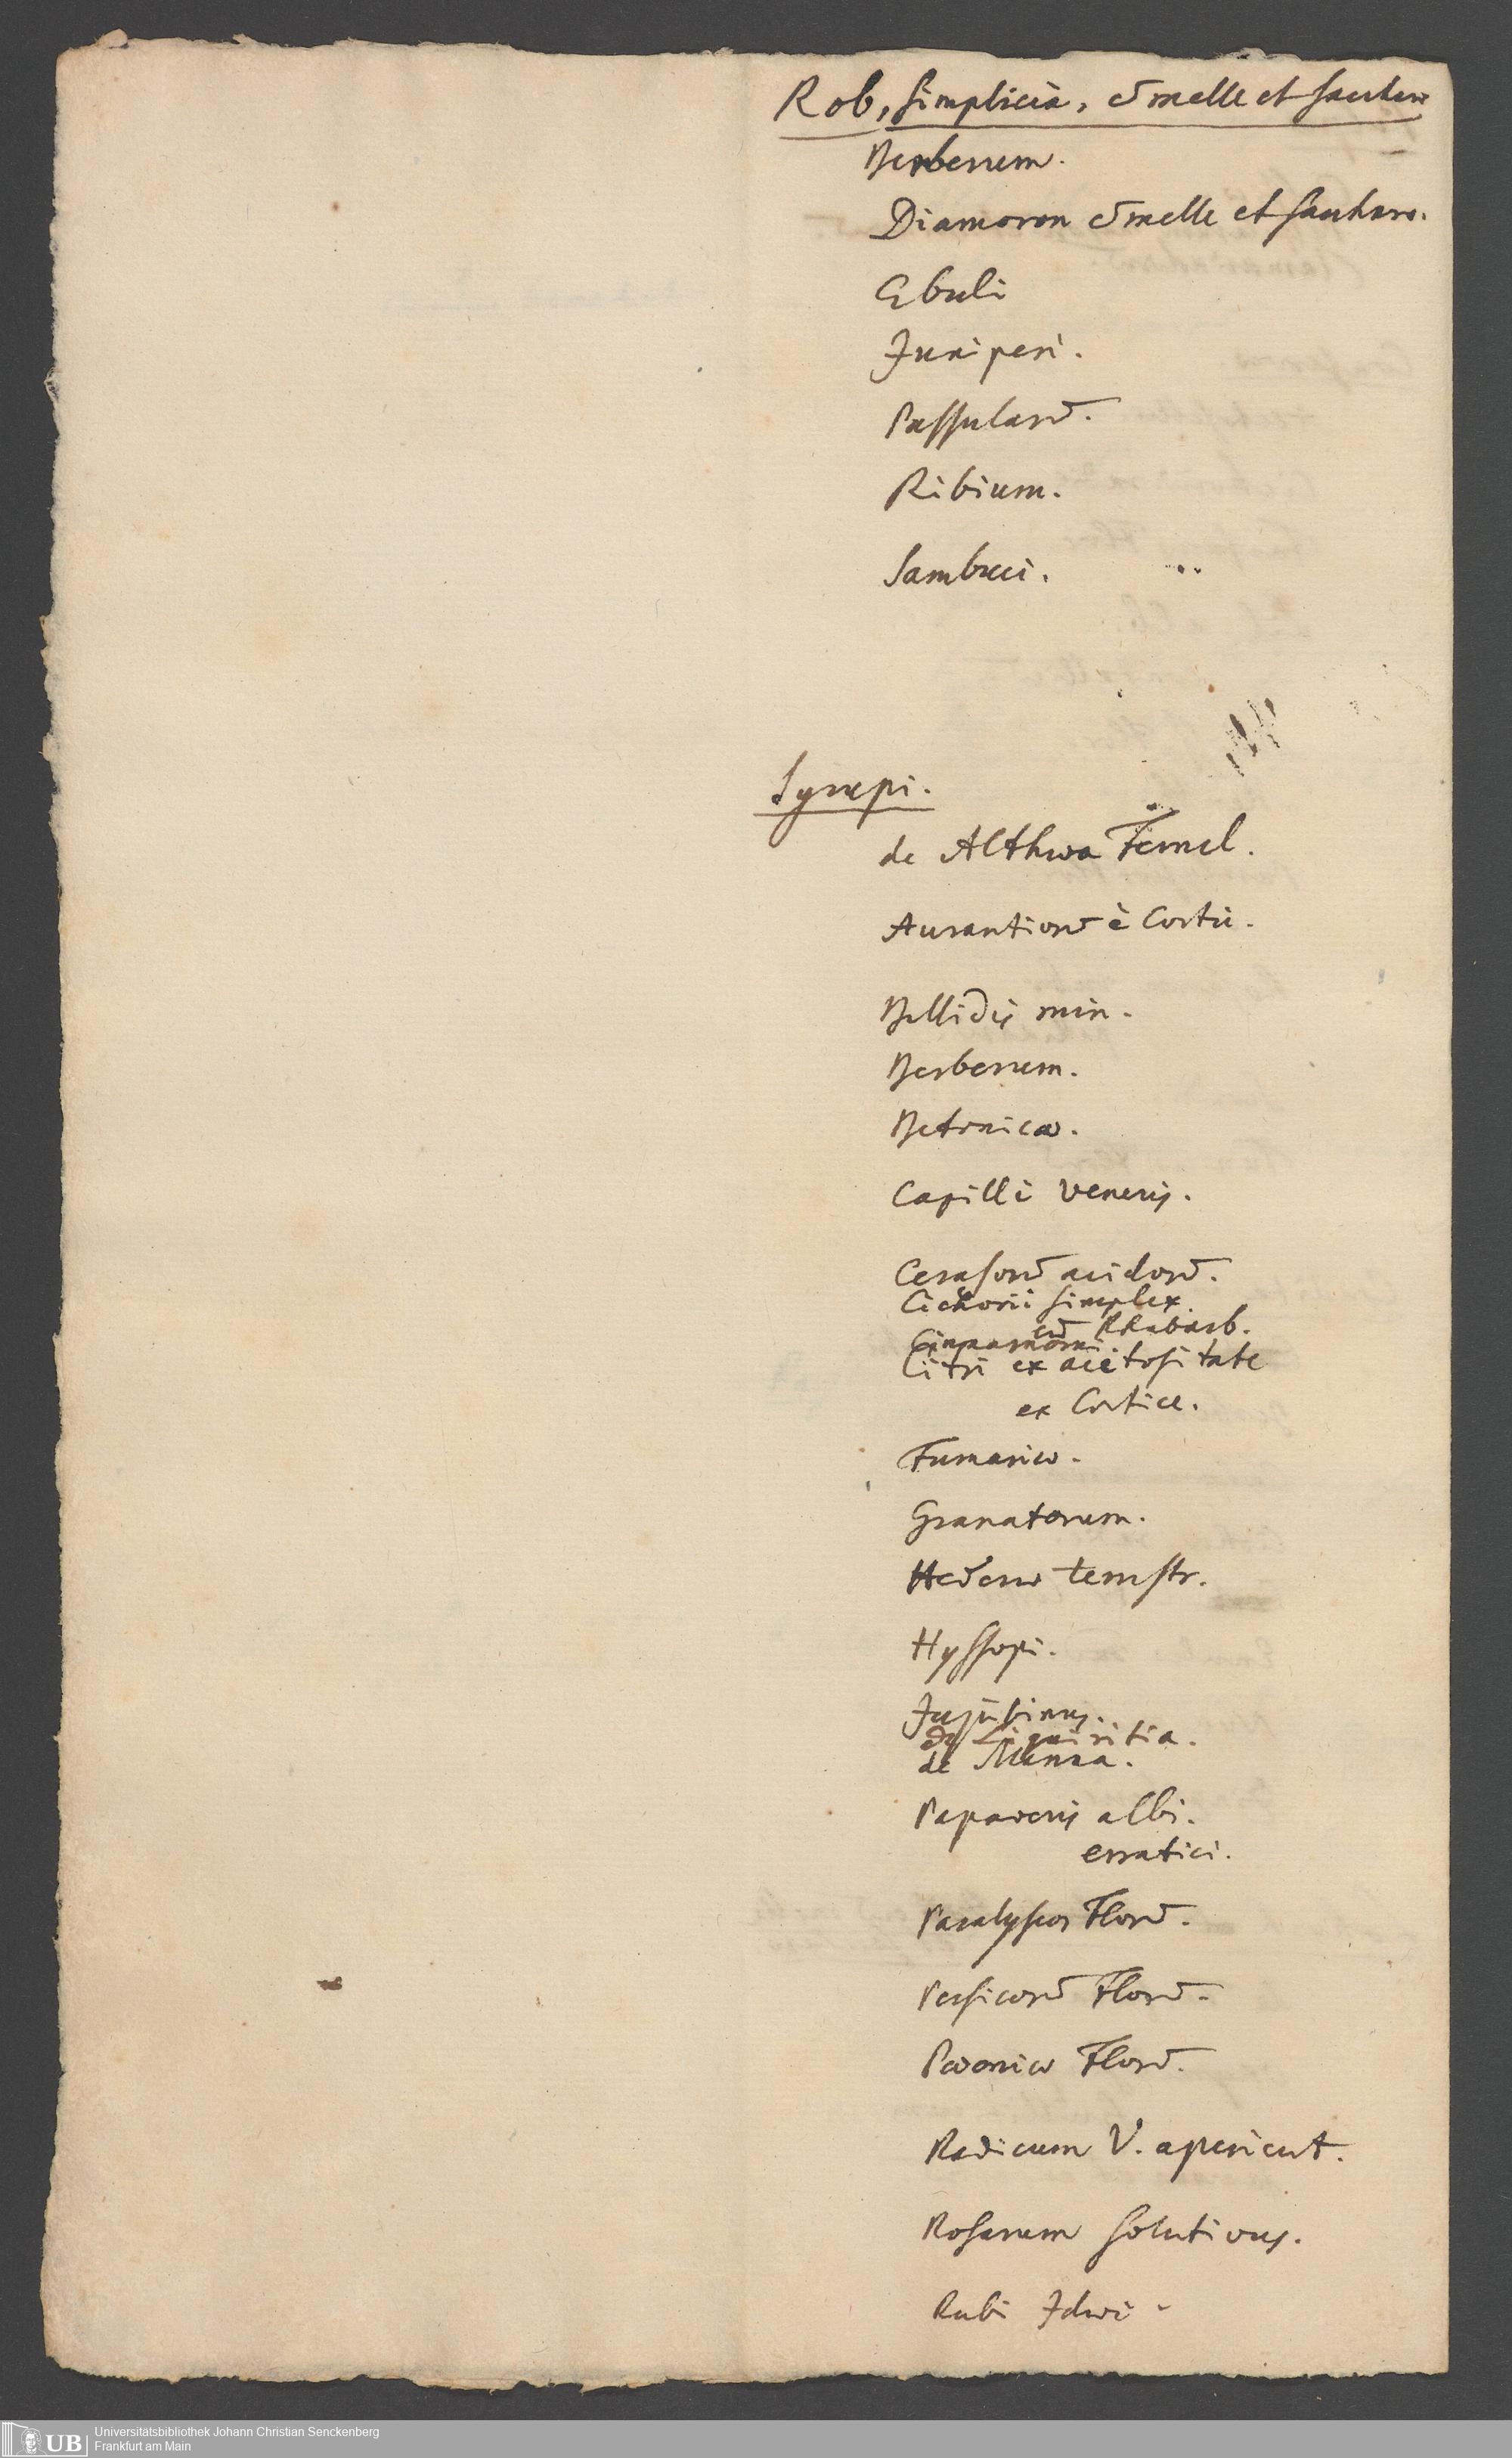 Rob, simplicia, c̄ melle et sacchar
Berberum.
Diamoron c̄ melle et saccharo.
Ebuli
Juniperi.
Passularū.
Ribium.
Sambuci.
Syrupi.
de Althæa Fernel.
Aurantiorū è Cortic.
Bellidis min.
Berberum.
Betonicæ.
Capilli Veneris.
Cerasorū acidorū.
Cichorii simplex.
cū Rhabarb.
Cinnamomi
Citri ex acetositate
ex Cortice.
Fumariæ.
Granatorum.
Hederæ terrestr.
Hyssopi.
Jujubinus.
de Liquiritia.
de Manna.
Papaveris albi.
erratici.
Paralyseos Florū.
Persicorū Florū.
Pæoniæ Florū.
Radicum V. aperient.
Rosarum solutivus.
Rubi Idæi
UB
Universitätsbibliothek Johann Christian Senckenberg
Frankfurt am Main